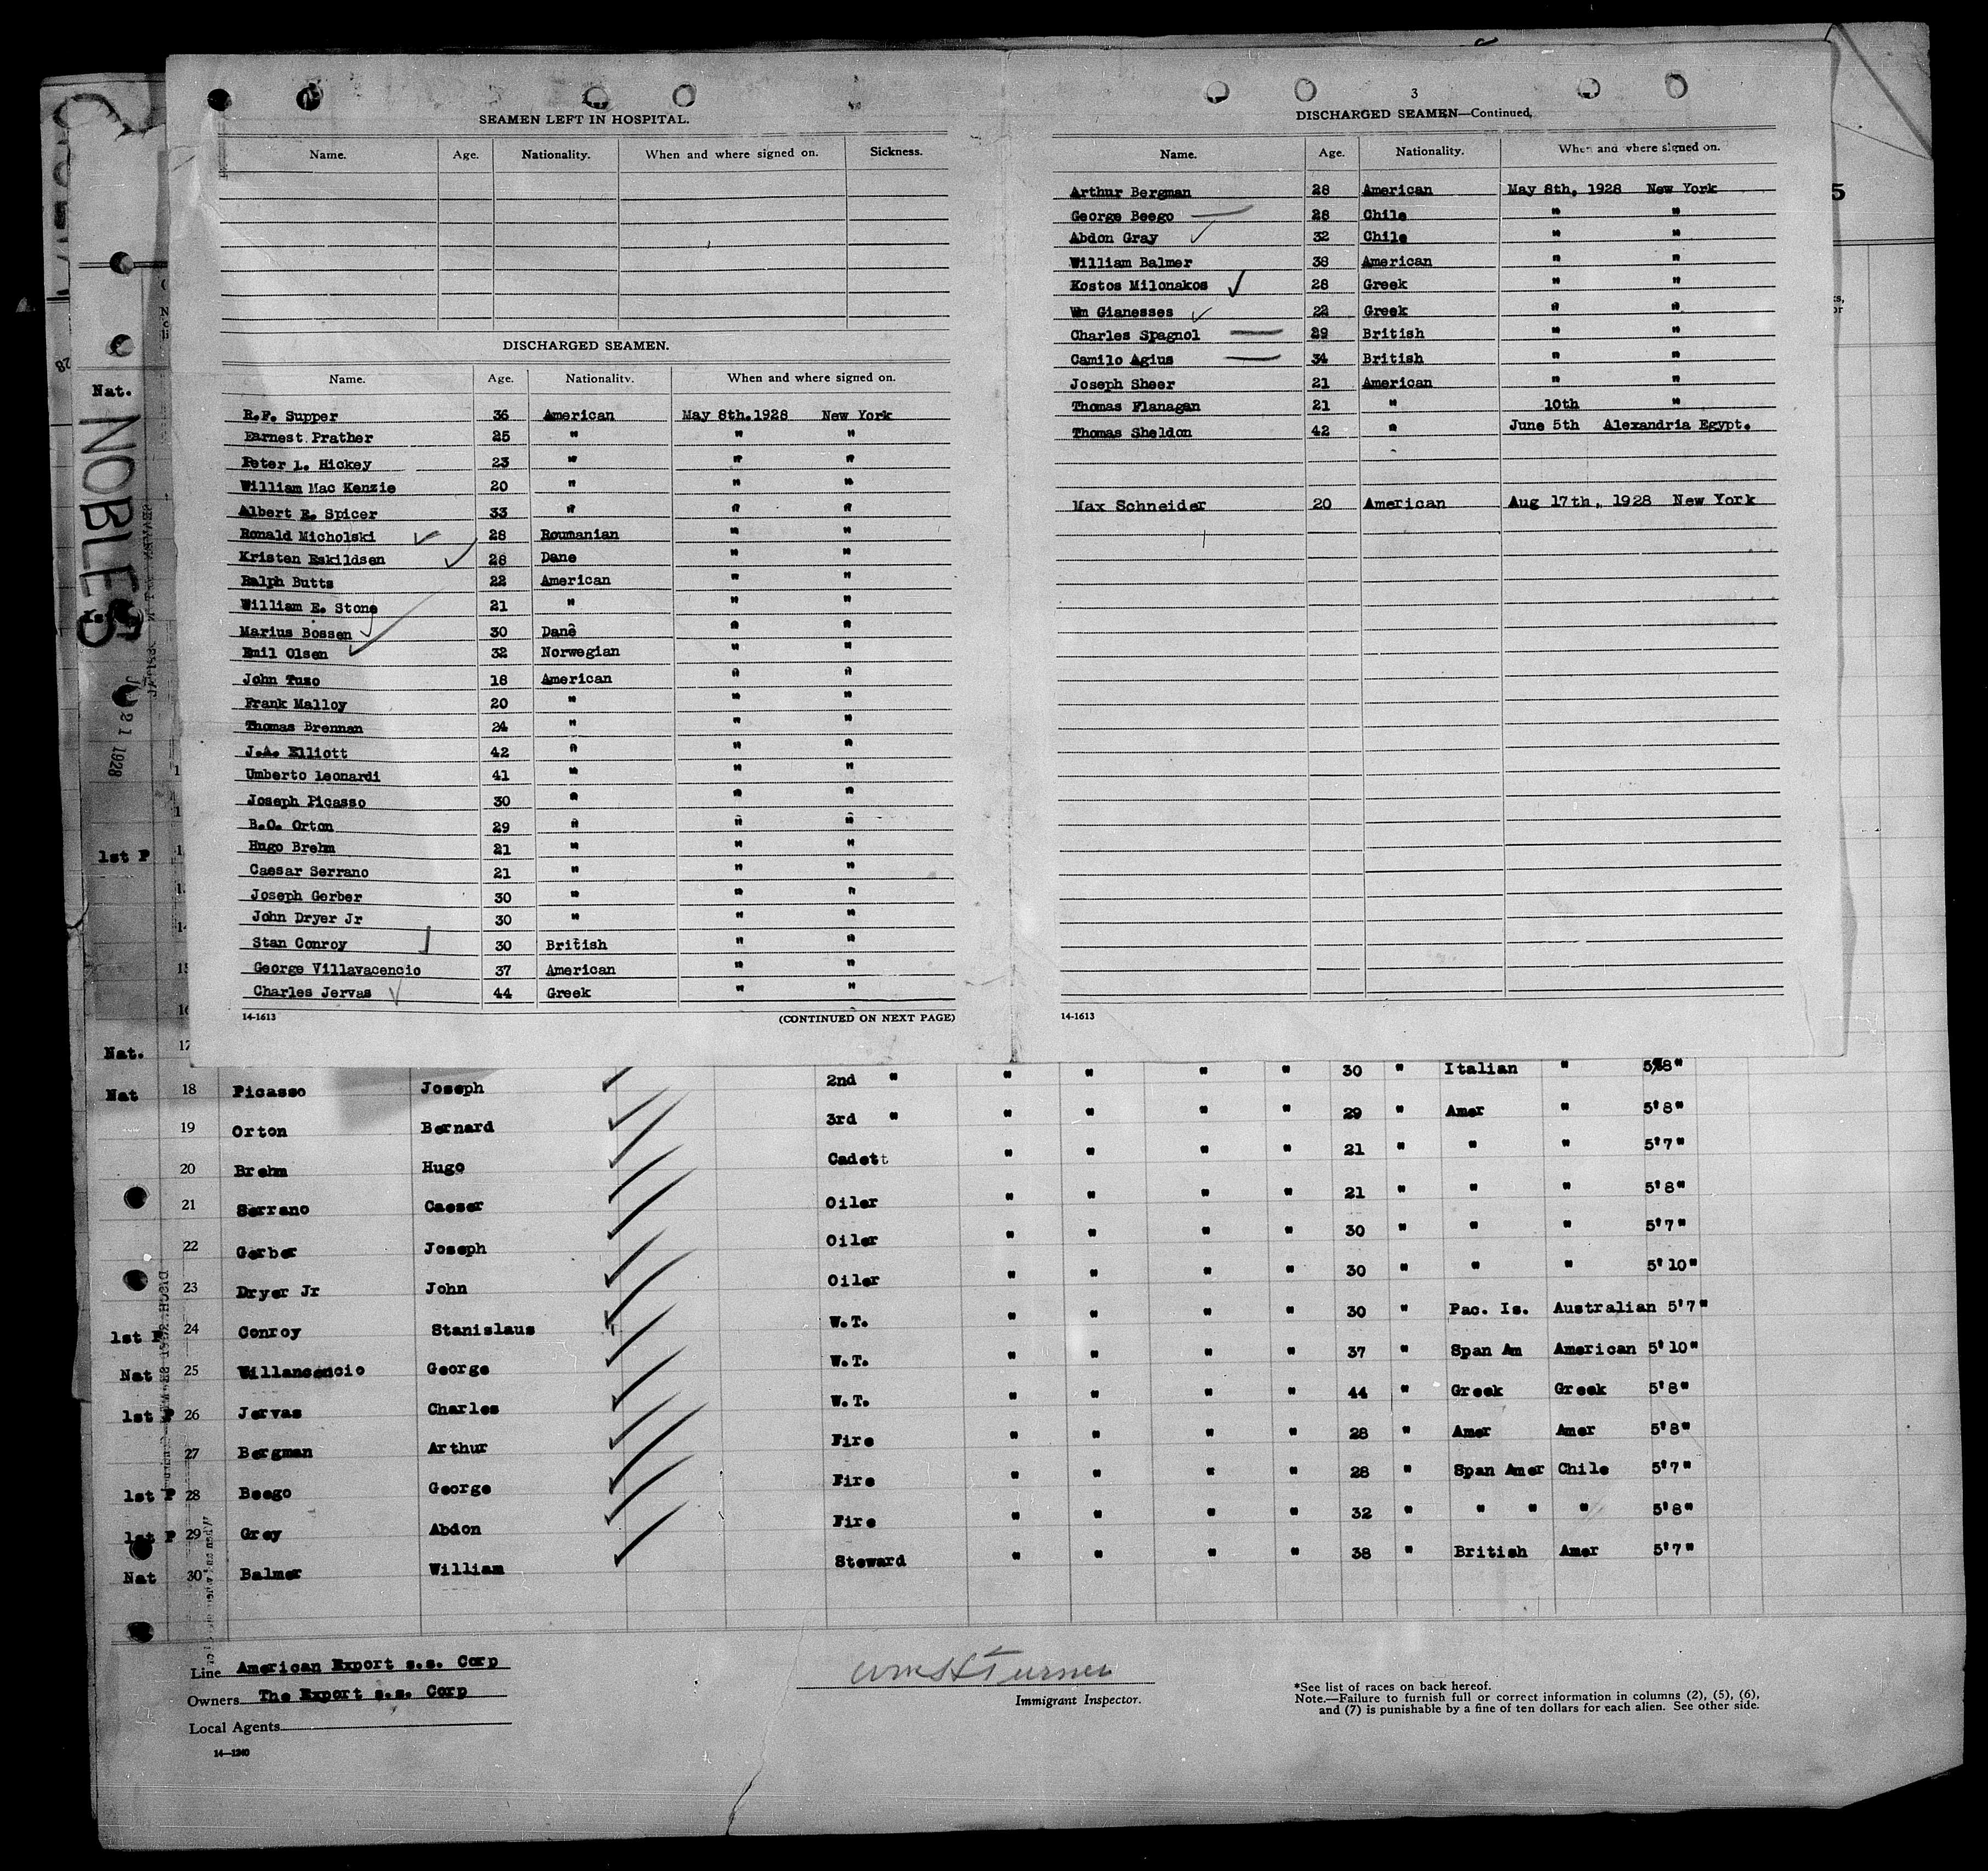 SEAMEN LEFT IN HOSPITAL.
Name. Age. Nationality. When and where signed on. Sickness.
DISCHARGED SEAMEN.
Name. Age. Nationality. When and where signed on.
R.F. Supper 36 American May 8th.1928 New York
Earnest Prather 25 " " "
Peter L. Hickey 23 " " "
William Mac Kenzie 20 " " "
Albert E. Spicer 33 " " "
Ronald Micholski 28 Roumanian " "
Kristen Eskildsen 28 Dane " "
Ralph Butts 22 American " "
William E. Stone 21 " " "
Marius Bossen 30 Dane " "
Emil Olsen 32 Norwegian " "
John Tuso 18 American " "
Frank Malloy 20 " " "
Thomas Brennan 24 " " "
J.A. Elliott 42 " " "
Umberto Leonardi 41 " " "
Joseph Picasso 30 " " "
B.O. Orton 29 " " "
Hugo Brehm 21 " " "
Caesar Serrano 21 " " "
Joseph Gerber 30 " " "
John Dryer Jr 30 " " "
Stan Conroy 30 British " "
George Villavacencio 37 American " "
Charles Jervas 44 Greek " "
14-1613 (CONTINUED ON NEXT PAGE)
3
DISCHARGED SEAMEN—Continued.
Name. Age. Nationality. When and where signed on.
Arthur Bergman 28 American May 8th, 1928 New York
George Beego 28 Chile " "
Abdon Gray 32 Chile " "
William Balmer 38 American " "
Kostos Milonakos 28 Greek " "
Wm Gianesses 22 Greek " "
Charles Spagnol 29 British " "
Camilo Agius 34 British " "
Joseph Sheer 21 American " "
Thomas Flanagan 21 " 10th "
Thomas Sheldon 42 " June 5th Alexandria Egypt.
Max Schneider 20 American Aug 17th, 1928 New York
14-1613
5
Nat.
NOBLES
21 1928
1st P
Nat. 17
Nat 18 Picasso Joseph 2nd " " " " " 30 " Italian " 5'8"
19 Orton Bernard 3rd " " " " " 29 " Amer " 5'8"
20 Brehm Hugo Cadett " " " " 21 " " " 5'7"
21 Serrano Caeser Oiler " " " " 21 " " " 5'8"
22 Gerber Joseph Oiler " " " " 30 " " " 5'7"
23 Dryer Jr John Oiler " " " " 30 " " " 5'10"
1st P 24 Conroy Stanislaus W.T. " " 30 " Pac. Is. Australian 5'7"
Nat 25 Willancencio George W.T. " " " " 37 " Span Am American 5'10"
1st P 26 Jervas Charles W.T. " " " " 44 " Greek Greek 5'8"
27 Bergman Arthur Fire " " " " 28 " Amer Amer 5'8"
1st P 28 Beego George Fire " " " " 28 " Span Amer Chile 5'7"
1st P 29 Grey Abdon Fire " " " " 32 " " " " 5'8"
Nat 30 Balmer William Steward " " " " 38 " British Amer 5'7"
Line American Export s.s. Corp
Owners The Export s.s. Corp
Local Agents
14—1240
Wm H Turner
Immigrant Inspector.
*See list of races on back hereof.
Note.—Failure to furnish full or correct information in columns (2), (5), (6),
and (7) is punishable by a fine of ten dollars for each alien. See other side.